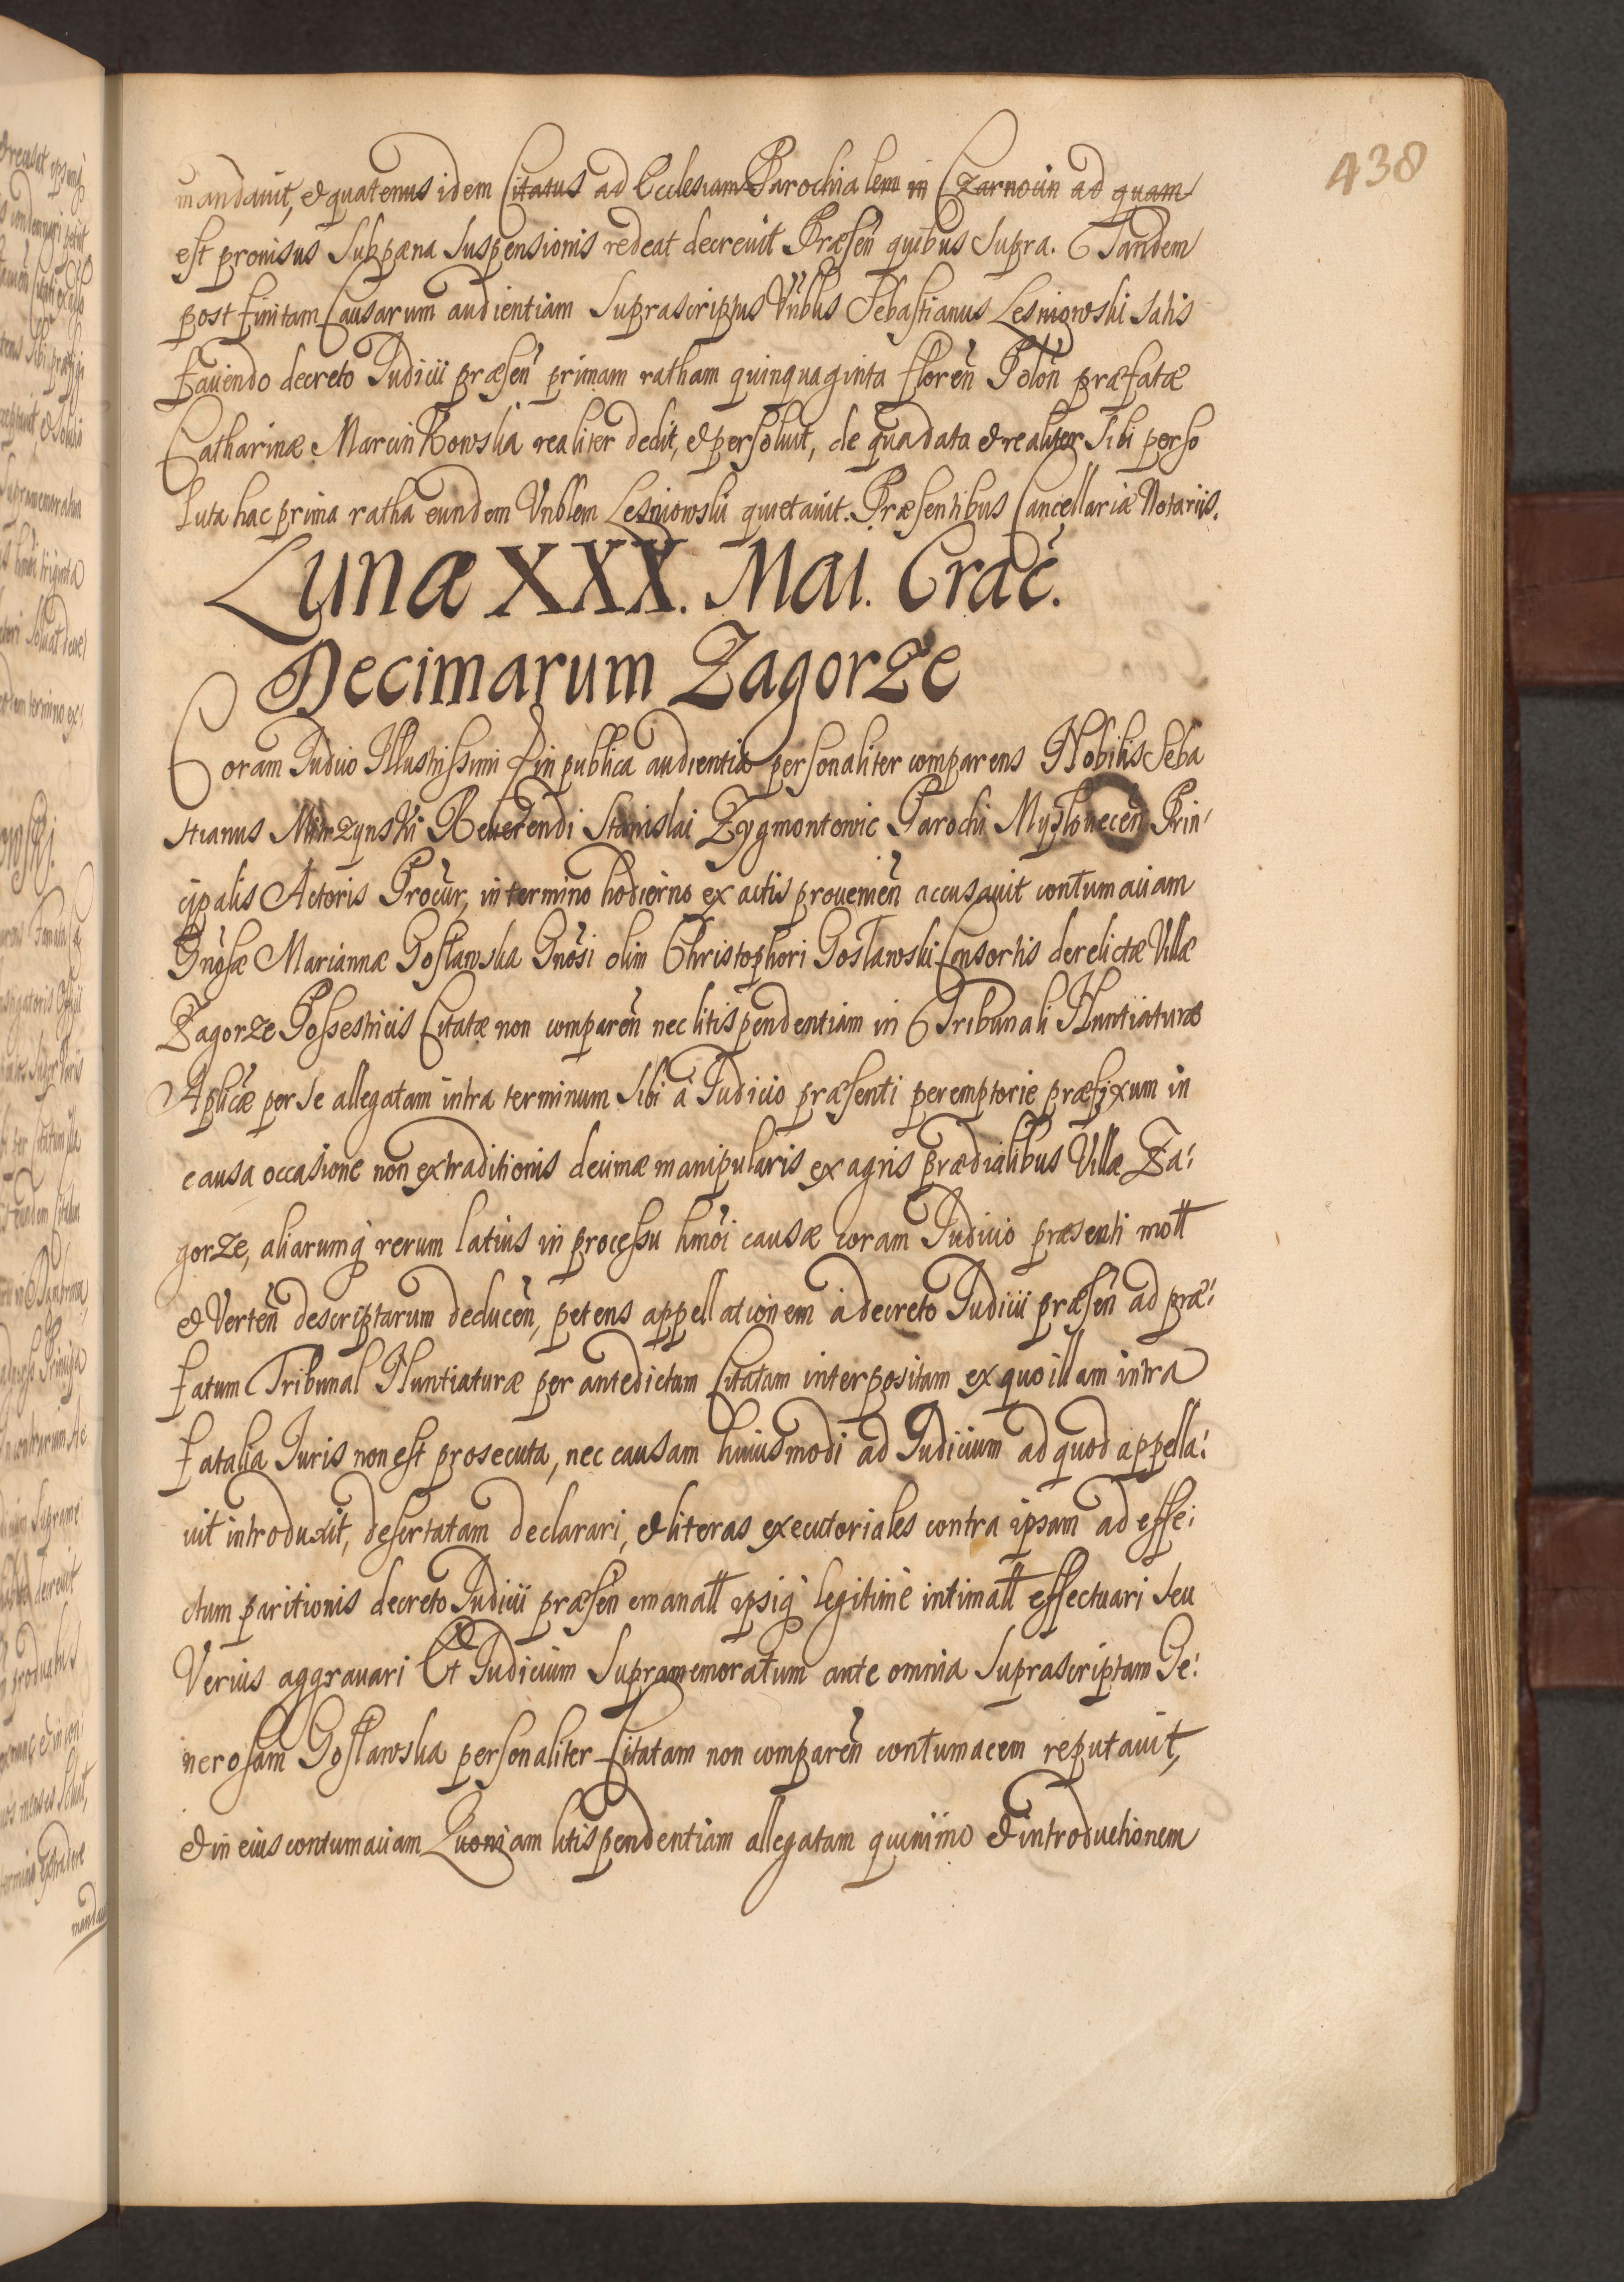 438
mandauit, & quatenus idem Citatus ad Ecclesiam Parochialem in Czarnocin ad quam
est prouisus Sub pæna Suspensionis redeat decreuit Præsen̄ quibus Supra. Tandem
post finitam Causarum audientiam Suprascriptus Vn̄blis Sebastianus Lesniowski Satis
fauendo decreto Iudicii præsen̄ primam ratham quinquaginta floren̄ Polon̄ præfatæ
Catharinæ Marcinkowska realiter dedit, & persoluit, de qua data & realiter Sibi perso
luta hac prima ratha eundem Vnblem Lesniowski quietauit. Præsentibus Cancellariæ Notariis.
Lunæ XXX. Mai. Crac̄.
Decimarum Zagorze
Coram Iudicio Illustrissimi D in publica audientia personaliter comparens Nobilis Seba
stianus Reuerendi Stanislai Zygmontowic Parochi Mysłouecen̄ Prin
cipalis Actoris Procur̄, in termino hodierno ex actis prouenien̄ accusauit contumaciam
Gn̄osæ Mariannæ Gosławska Gn̄osi olim Christophori Gosławski Consortis derelictæ Villæ
Zagorze Possestricis Citatæ non comparen̄ nec litispendentiam in Tribunali Nuntiaturæ
Aplicæ per se allegatam intra terminum Sibi à Iudicio præsenti peremptorie præfixum in
causa occasione non extraditionis decimæ manipularis ex agris prædialibus Villæ Za:
gorze, aliarumq̄ rerum latius in processu hmōi causæ coram Iudicio præsenti mott
& Verten̄ descriptarum deducen̄, petens appellationem à decreto Iudicii præsen̄ ad præ:
fatum Tribunal Nuntiaturæ per antedictam Citatam interpositam ex quo illam intra
fatalia Iuris non est prosecuta, nec causam huiusmodi ad Iudicium ad quod appella:
uit introduxit, desertatam declarari, & literas executoriales contra ipsam ad effe:
ctum paritionis decreto Iudicii præsen̄ emanatt ipsiq̄ legitime intimatt effectuari seu
Verius aggrauari Et Iudicium Supramemoratum ante omnia Suprascriptam Ge:
nerosam Gosławska personaliter Citatam non comparen̄ contumacem reputauit,
& in eius contumaciam Quoniam litispendentiam allegatam quinimo & introductionem